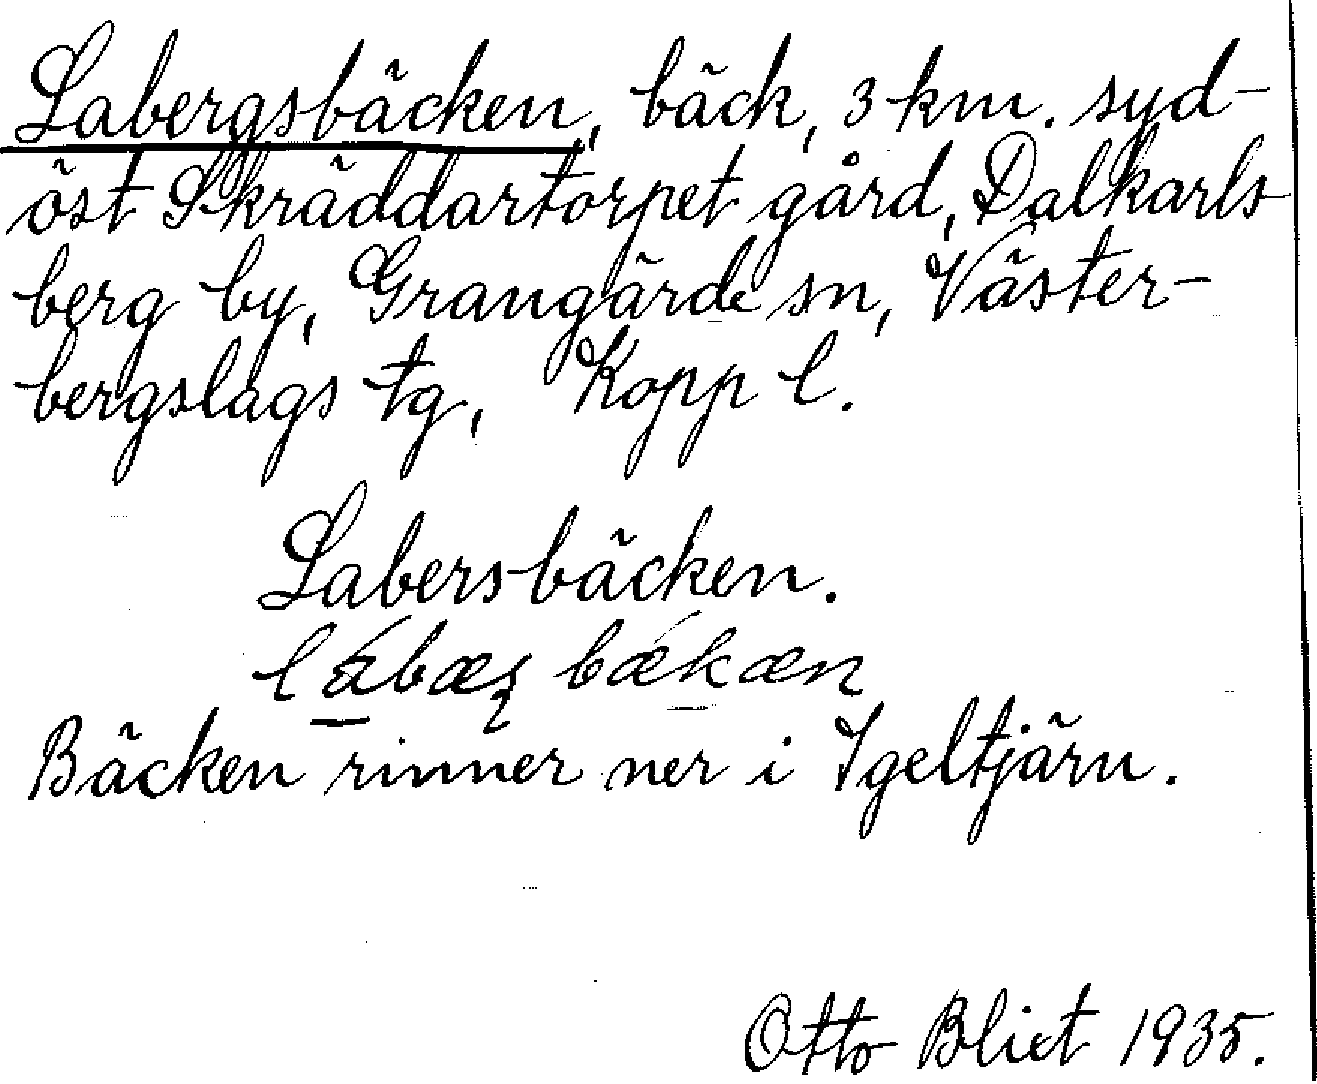 Labergsbäcken, bäck, 3 km. syd-
öst Skräddartorpet gård, Dalkarls
berg by, Grangärde sn, Väster-
bergslags tg, Kopp l.
Labersbäcken.
bækæn
Bäcken rinner ner i Igeltjärn.
Otto Blixt 1935.